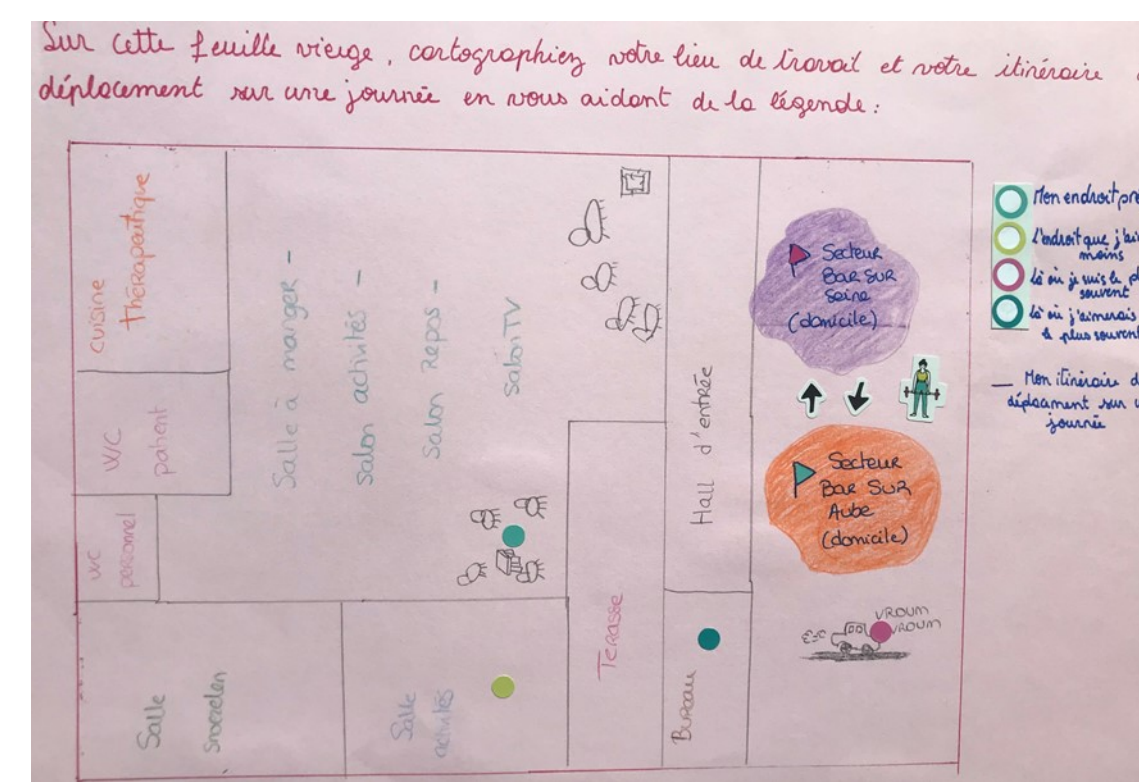 Sur cette feuille vierge, cartographiez votre lieu de travail et votre itinéraire
déplacement sur une journée en vous aidant de la légende :
cuisine
Thérapeutique
W/C
patient
WC
personnel
Salle à manger -
Salon activités -
Salon Repos -
Salon TV
Salle
snoezelen
Salle
activités
Terasse
Hall d'entrée
Bureau
Secteur
Bar sur
Seine
(domicile)
Secteur
Bar sur
Aube
(domicile)
VROUM
VROUM
Mon endroit
l'endroit que
moins
là où je suis le
souvent
là où j'aimerais
plus souvent
Mon itinéraire
déplacement sur
journée